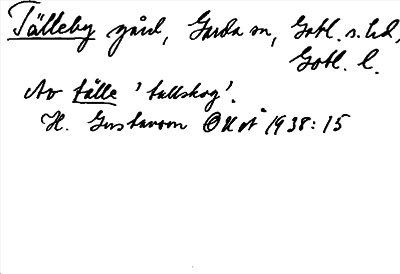 Tälleby gård, Garda sn, Gotl. s. hd,
Gotl. l.
Av tälle 'tallskog'.
H. Gustavson OUÅ 1938:15